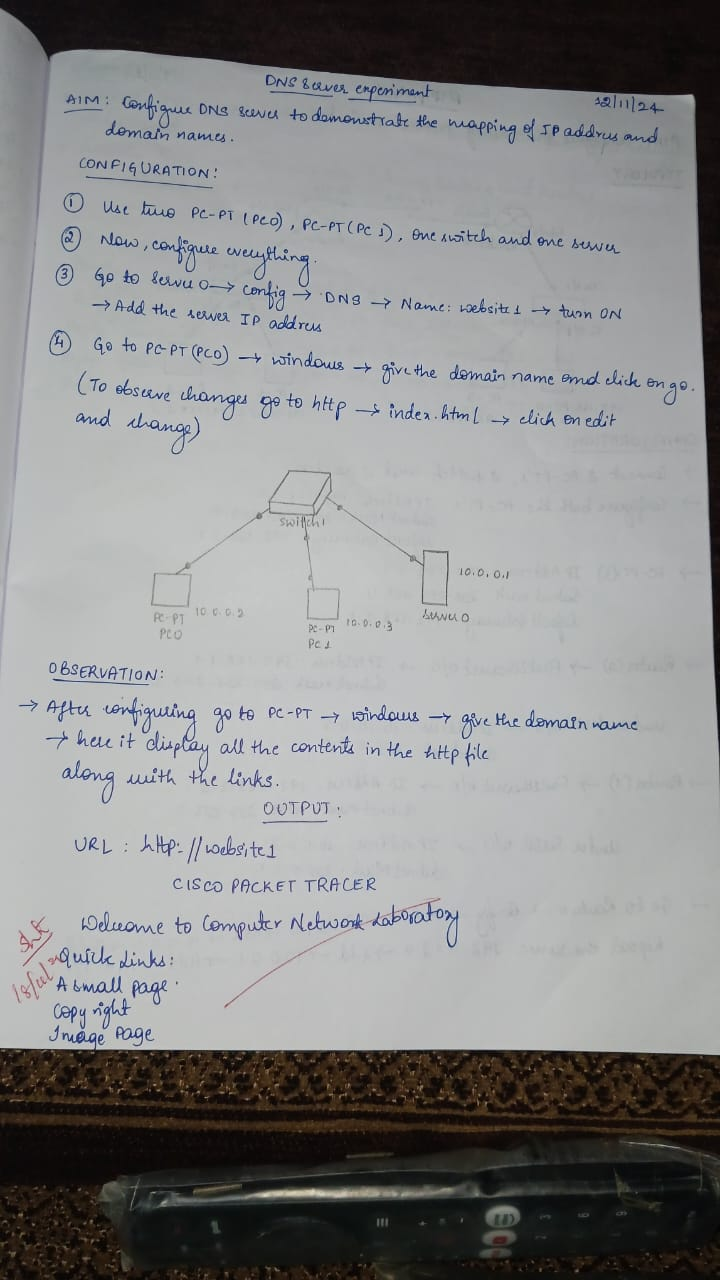 DNS Server experiment
12/11/24
AIM: Configure DNS server to demonstrate the mapping of IP address and
domain names.
CONFIGURATION:
① Use two PC-PT (PC0), PC-PT (PC 1), one switch and one server
② Now, configure everything.
③ Go to server 0 → config → DNS → Name: website1 → turn ON
→ Add the server IP address
④ Go to PC-PT (PC0) → windows → give the domain name and click on go.
(To observe changes go to http → index.html → click on edit
and change)
Switch1
10.0.0.1
Server 0
PC-PT 10.0.0.2
PC0
PC-PT 10.0.0.3
PC 1
OBSERVATION:
→ After configuring go to PC-PT → windows → give the domain name
→ here it display all the contents in the http file
along with the links.
OUTPUT:
URL : http://website1
CISCO PACKET TRACER
Welcome to Computer Network Laboratory
Quick Links:
A small page.
Copy right
Image Page